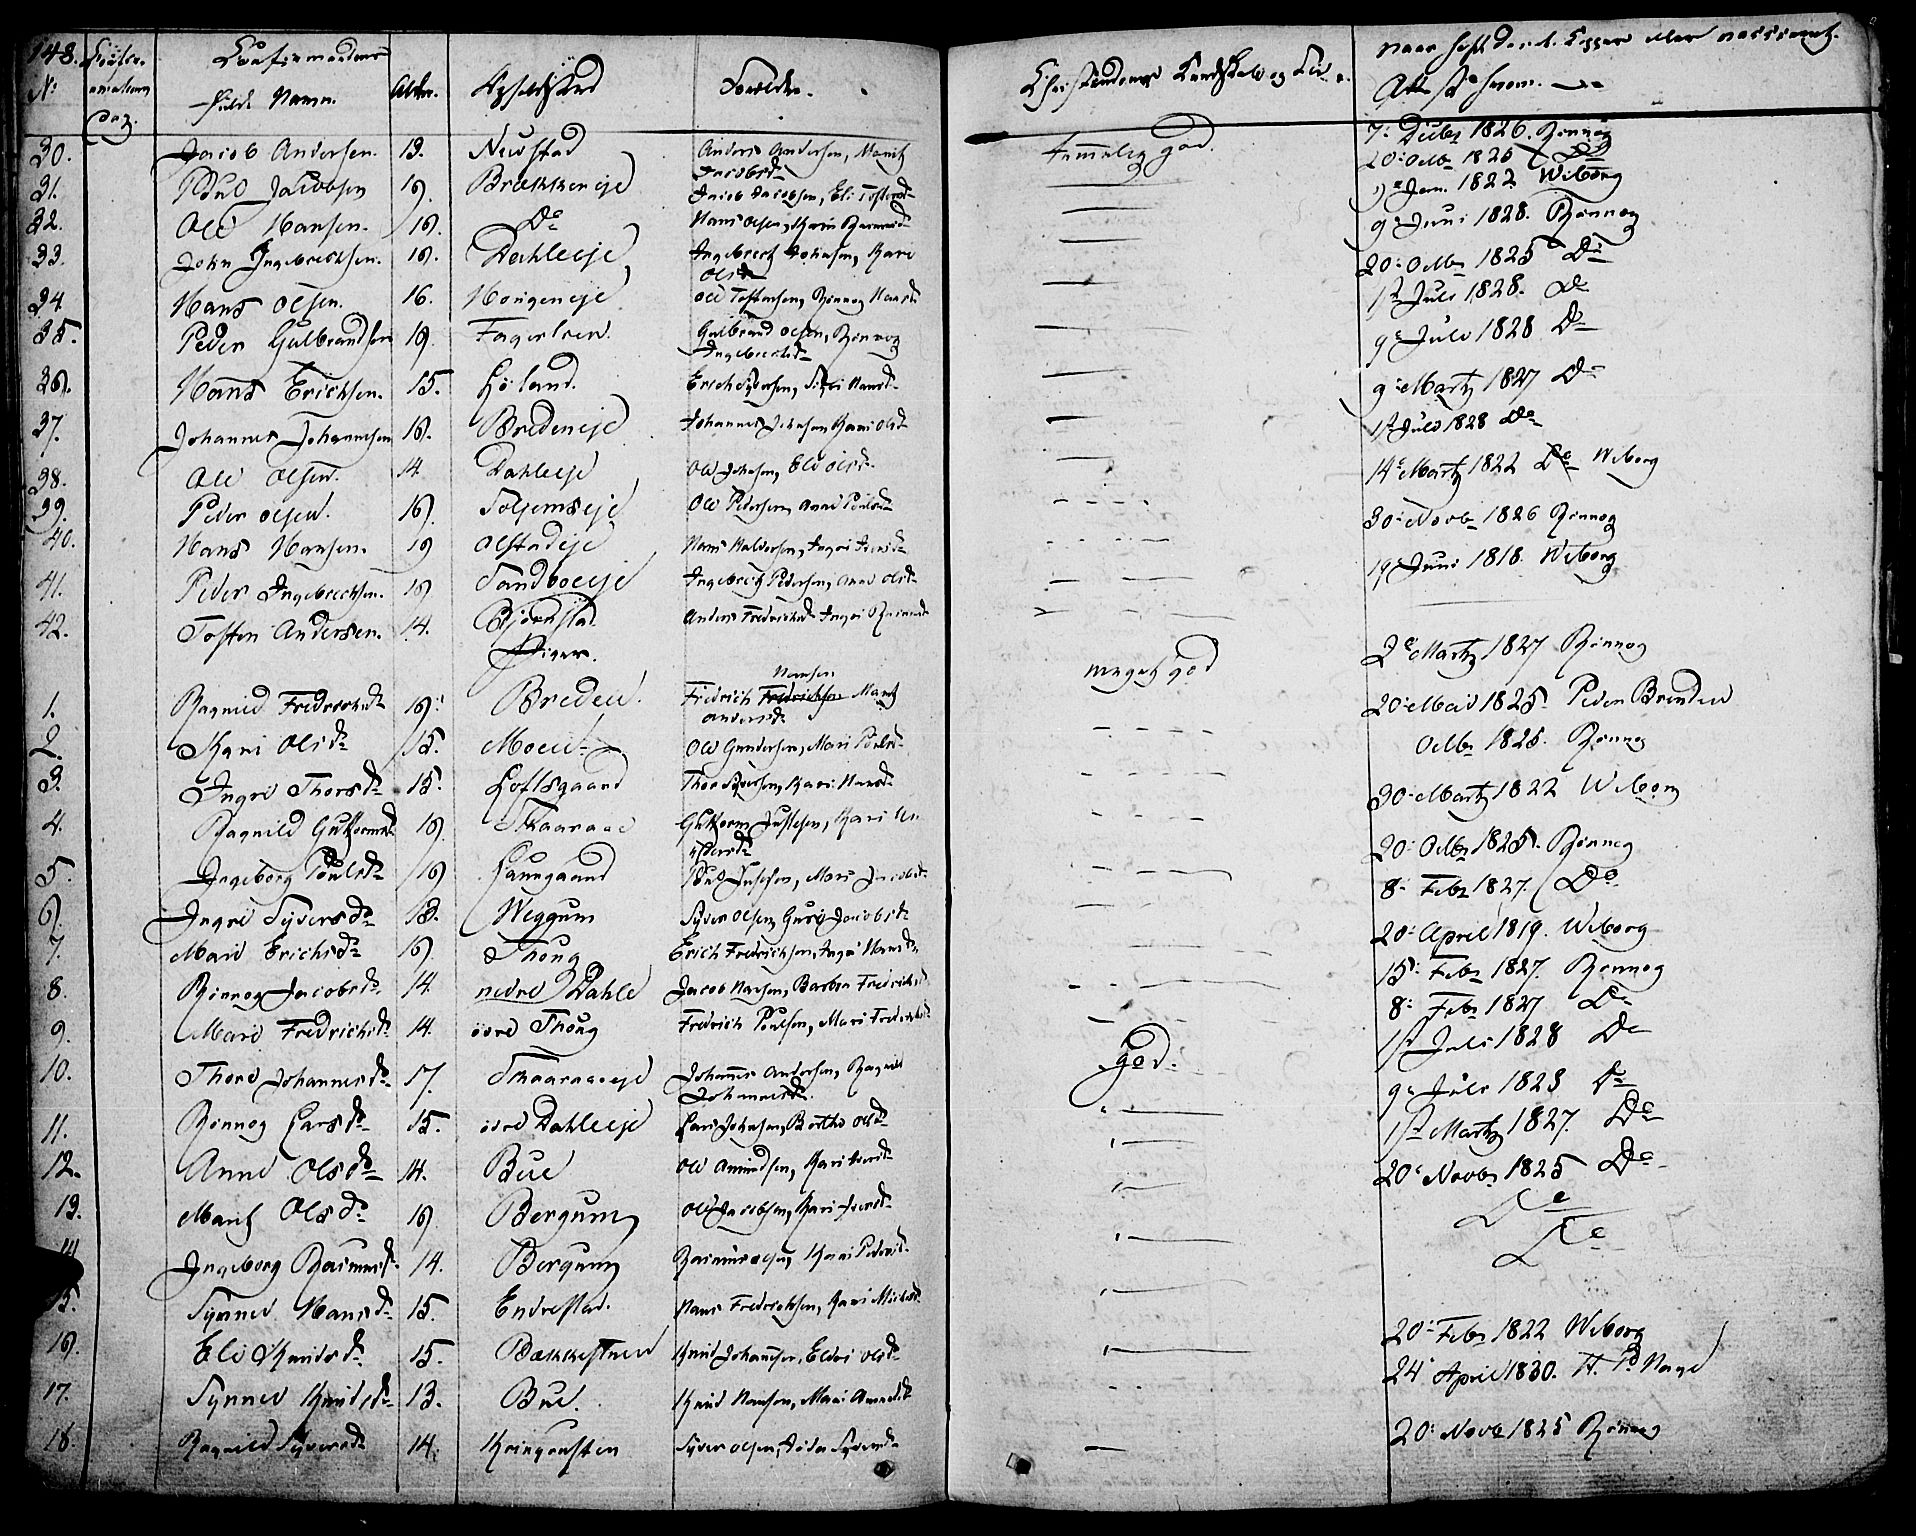 148.
No: Confirmations Dag. Confirmandens fulde Navn. Alder. Opholdssted Forældre. Christendoms Kundskab og naar sidst Kopper eller vaccineret. Attest
30. Jacob Andersen. 13. Neustad Anders Andersen, Marit Jacobsd temmelig god. 7: Decbr 1826. Rönnog
31. Poul Jacobsen 16. Brækkeneje Jacob Jacobsen, Eli 20: Octbr 1825 Do
32. Ole Hansen. 16. Do Hans Olsen, Kari Jan. 1822 Wiborg
33. John Ingebrechtsen. 16. Dahleeje Ingebrecht Johnsen, Kari Olsd 9: Juni 1828. Rönnog
34 Hans Olsen. 16. Ole Tostensen, Rönnog Hansd 20: Octbr 1825 Do
35. Peder Gulbrandsen 16. Fagerlien Gulbrand Olsen, Rönnog Ingebrechtsd 1ste Juli 1828. Do
36. Hans Erichsen. 15. Erich Syversen, Siri Hansd 9: Juli 1828 Do
37. Johannes Johannesen 16. Bredeneje Johannes Johnsen Kari Olsd 9: Martz 1827 Do
38. Ole Olsen. 14 Dahleeje Ole Johnsen, Eli Olsd. 1ste Juli 1828 Do
39. Peder Olsen. 16. Soljemseje Ole Pedersen, Anne Poulsd 14: Martz 1822 Do Wiborg
40. Hans Hansen. 16 Olstadeje Hans Haldorsen, Ingri Iversd 30: Novbr 1826 Rönnog
41. Peder Ingebrechtsen. 16 Sandboeeje Ingebrecht Pedersen, Anne Olsd 19: Juni 1818. Wiborg
42. Tosten Andersen. 14. Bjørnstad. Anders Fredrichsen Ingri
Piger.
1. Ragnild Fredrichsd 16: Breden. Fredrich Hansen Marit Andersd meget god 2: Martz 1827 Rönnog
2. Kari Olsd 15. Moen Ole Gundersen, Mari Poulsd 20: Mai 1825. Peder Brenden
3. Ingri Thorsd 15. Loftsgaard Thor Syversen, Kari Hansd Octbr 1825. Rönnog
4. Ragnild Guttormsd 16. Skaaraae Guttorm Justesen, Kari 30: Martz 1822 Wiborg
5. Ingeborg Poulsd 16 Laurgaard Poul Justesen, Mari Jacobsd 20: Octbr 1825. Rönnog
6. Ingri Syversd 18. Weggum Syver Olsen Guri Jacobsd 8: Febr 1827. Do
7. Mari Erichsd 16. Thong Erich Fredrichsen, Ingri Hansd 20: April 1819. Wiborg
8. Rönnog Jacobsd. 14 nedre Dahle Jacob Hansen, Barbra Fredrichsd 15: Febr 1827. Rönnog
9. Mari Fredrichsd 14. övre Thong Fredrich Poulsen, Mari Fredrichsd 8: Febr 1827 Do
10. Thore Johannesd 17. Skaaraaeeje Johannes Andersen, Ragnild Johannesd. god: 1ste Juli 1828 Do
11. Rönnog Larsd 15. övre Dahleeje Lars Johnsen, Berthe Olsd 9: Juli 1828 Do
12. Anne Olsd 14. Bue Ole Amundsen, Kari Iversd 1ste Martz 1827. Do
13. Marit Olsd 16. Bergum Ole Jacobsen, Kari Iversd 20: Novbr 1825 Do
14 Ingeborg Rasmusd 14. Bergum Rasmus Olsen Kari Pedersd. Do
15. Synnev Hansd 15. Endrestad. Hans Fredrichsen, Kari Do
16. Eli Knudsd 15. Knud Johannsen, Eldri Olsd 20: Febr 1822 Wiborg
17. Synnev Knudsd 13. Bue. Knud Hansen, Mari Amundsd 24: April 1830.
18. Ragnild Syversd 14. Kringensten Syver Olsen, Syversd 20: Novbr 1825 Rönnog